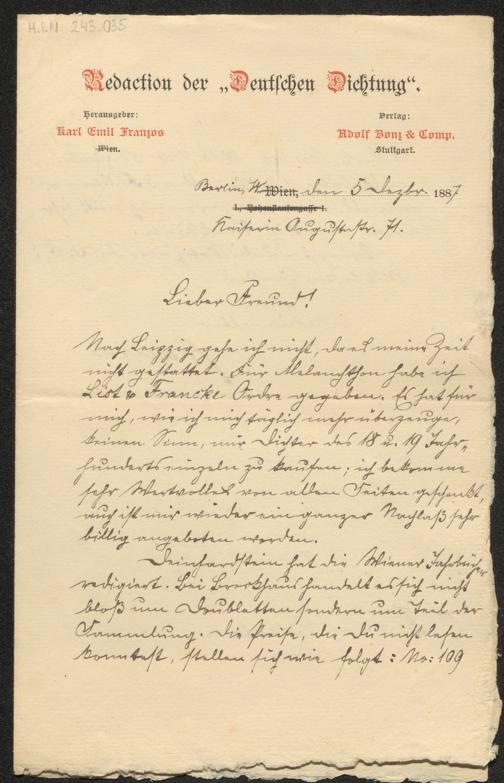 H.I.N 243.035
Redaction der „Deutschen Dichtung“.
Herausgeber:
Karl Emil Franzos
Wien.
Verlag:
Adolf Bonz & Comp.
Stuttgart.
Berlin, W. Wien, den 5 Dezbr. 1887
I., Hohenstaufengasse 1.
Kaiserin Augustastr. 71.
Lieber Freund!
Nach Leipzig gehe ich nicht, da es meine Zeit
nicht gestattet. Für Melanchthon habe ich
List & Francke Ordre gegeben. Es hat für
mich, wie ich mich täglich mehr überzeuge,
keinen Sinn, mir Dichter des 18 u. 19 Jahr-
hunderts einzeln zu kaufen; ich bekomme
sehr Wertvolles von allen Seiten geschenkt,
auch ist mir wieder ein ganzer Nachlaß sehr
billig angeboten worden.
Deinhardstein hat die Wiener Jahrbücher
redigiert. Bei Brockhaus handelt es sich nicht
bloß um Doubletten sondern um Teil der
Sammlung. Die Preise, die Du nicht lesen
konntest, stellen sich wie folgt: No: 109